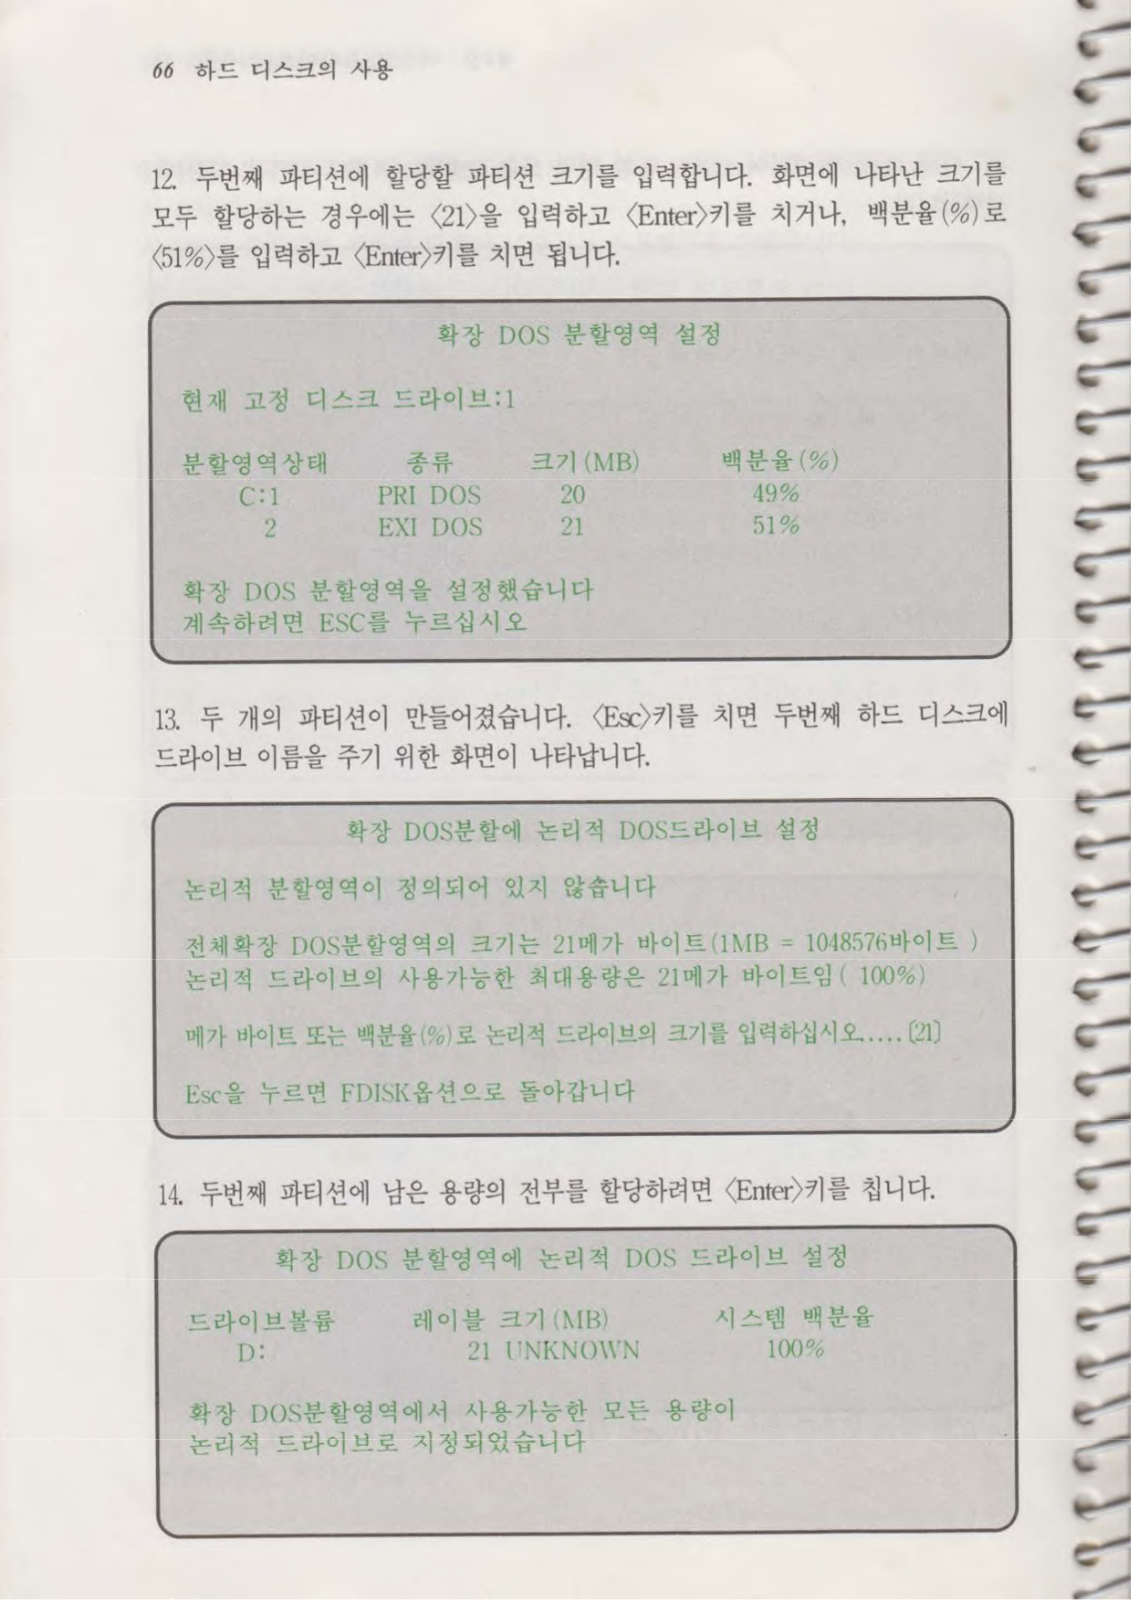 66 하드 디스크의 사용
12. 두번째 파티션에 할당할 파티션 크기를 입력합니다. 화면에 나타난 크기를
모두 할당하는 경우에는 〈21〉을 입력하고 〈Enter〉키를 치거나, 백분율(%)로
〈51%〉를 입력하고 〈Enter〉키를 치면 됩니다.
확장 DOS 분할영역 설정
현재 고정 디스크 드라이브:1
분할영역상태 종류 크기(MB) 백분율(%)
C:1 PRI DOS 20 49%
2 EXI DOS 21 51%
확장 DOS 분할영역을 설정했습니다
계속하려면 ESC를 누르십시오
13. 두 개의 파티션이 만들어졌습니다. 〈Esc〉키를 치면 두번째 하드 디스크에
드라이브 이름을 주기 위한 화면이 나타납니다.
확장 DOS분할에 논리적 DOS드라이브 설정
논리적 분할영역이 정의되어 있지 않습니다
전체확장 DOS분할영역의 크기는 21메가 바이트(1MB = 1048576바이트 )
논리적 드라이브의 사용가능한 최대용량은 21메가 바이트임( 100%)
메가 바이트 또는 백분율(%)로 논리적 드라이브의 크기를 입력하십시오.....〔21〕
Esc을 누르면 FDISK옵션으로 돌아갑니다
14. 두번째 파티션에 남은 용량의 전부를 할당하려면 〈Enter〉키를 칩니다.
확장 DOS 분할영역에 논리적 DOS 드라이브 설정
드라이브볼륨 레이블 크기(MB) 시스템 백분율
D: 21 UNKNOWN 100%
확장 DOS분할영역에서 사용가능한 모든 용량이
논리적 드라이브로 지정되었습니다